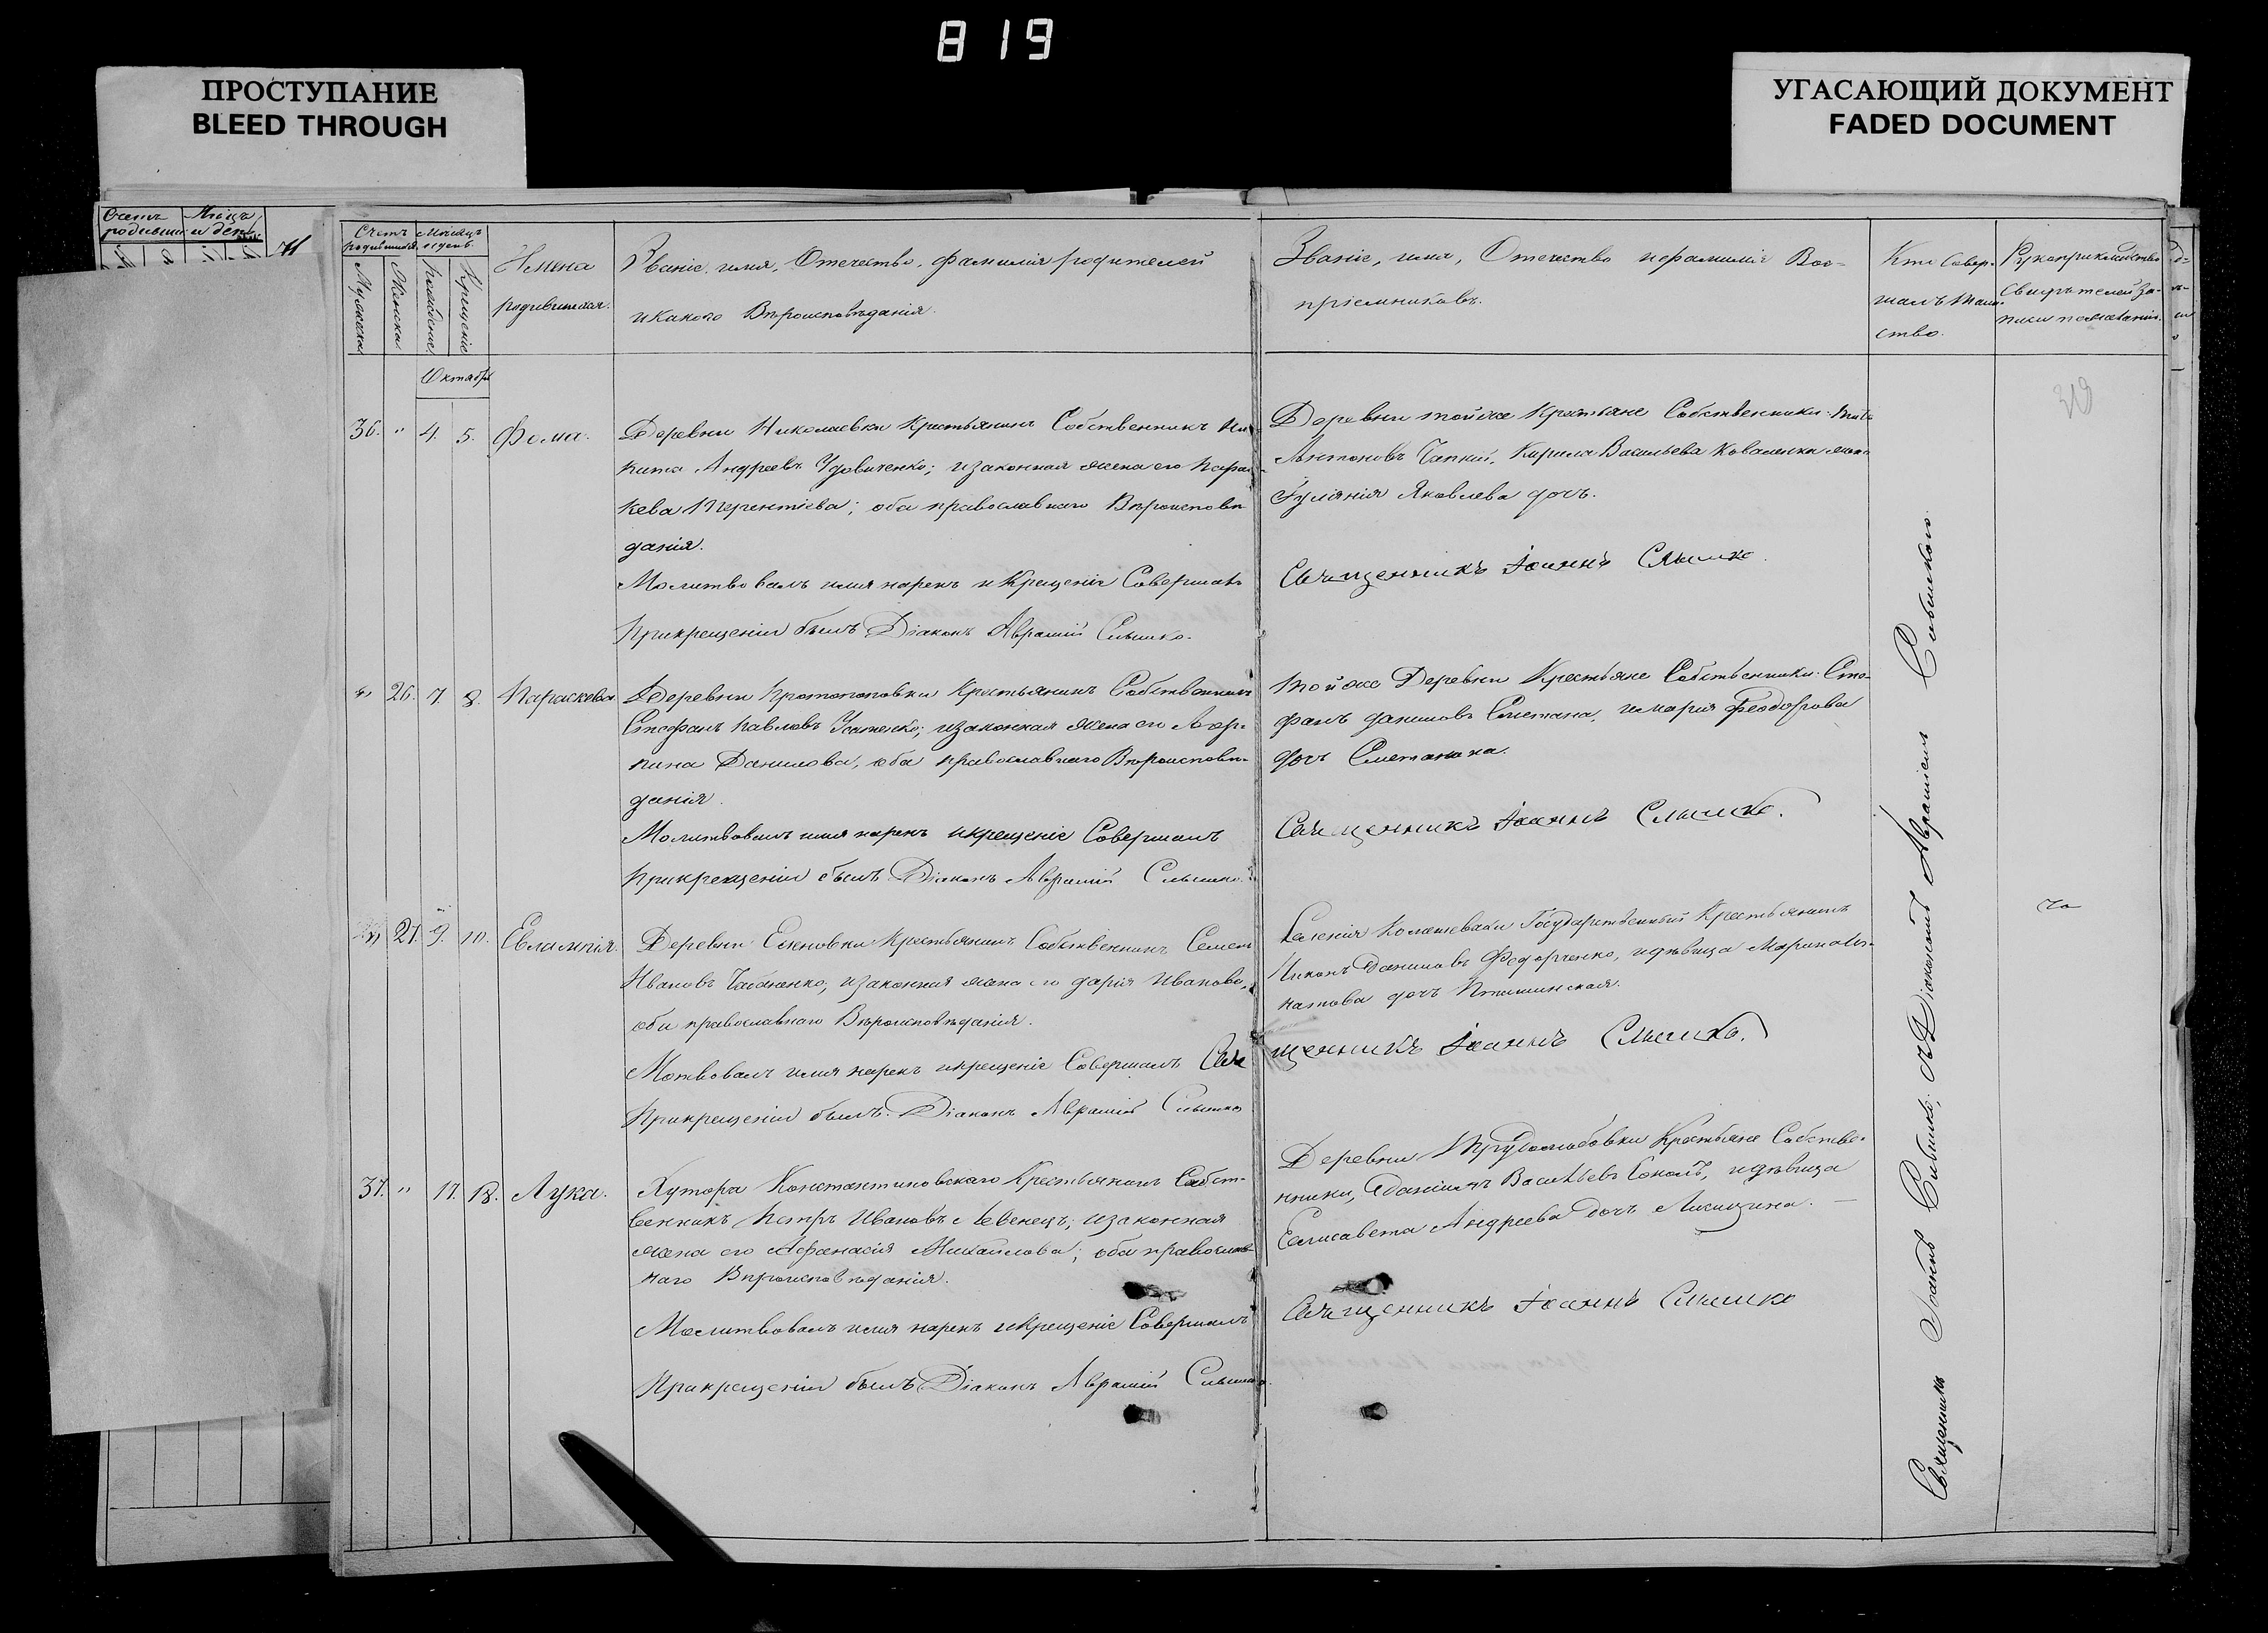 819
ПРОСТУПАНИЕ
BLEED THROUGH
УГАСАЮЩИЙ ДОКУМЕНТ
FADED DOCUMENT
Счетъ родившихся
Мужеска
Женска
Мѣсяцъ и день
Рожденія
Крещеніе
Имена
родившихся.
Званіе, имя, Отечество, фамилія родителей
и какого Вѣроисповѣданія.
Званіе, имя, Отечество и фамиліе Вос-
пріемниковъ.
Кто Совер-
шалъ Таин-
ство.
Рукоприкладство
Свидѣтелей за-
писи по желанію.
Октября
319
36. " 4. 5. Фома.
Деревни Николаевки Крестьянинъ Собственникъ Ни-
кита Андреевъ Удовиченко; и законная жена его Парас-
кева Терентіева; оба православнаго Вѣроисповѣ
данія.
Молитвовалъ имя нарекъ и Крещеніе Совершалъ
При крещеніи былъ Діаконъ Аврамій Сливко.
Деревни тойже Крестьяне Собственники:
Антоновъ Чапкій, Кирила Васильева Коваленка жена
Іуліянія Яковлева дочь.
Священникъ Іоаннъ
" 26. 7. 8. Параскева
Деревни Протопоповки Крестьянинъ Собственникъ
Стефанъ Павловъ Усатенко; и законная жена его Агри-
пина Данилова, оба православнаго Вѣроисповѣ-
данія.
Молитвовалъ имя нарекъ и крещеніе Совершалъ
При крещеніи былъ Діаконъ Аврамій
Тойже Деревни Крестьяне Собственники: Сте-
фанъ Даниловъ Сметана, и Марія Феодорова
дочь Сметанина.
Священникъ Іоаннъ
" 27. 9. 10. Евлампія.
Деревни Еленовки Крестьянинъ Собственникъ Семенъ
Ивановъ Чабаненко; и законная жена его Дарія Иванова,
оба православнаго Вѣроисповѣданія.
Мотвовалъ имя нарекъ и крещеніе Совершалъ Свя
щенникъ Іоаннъ
При крещеніи былъ Діаконъ Аврамій
Селенія Государственный Крестьянинъ
Никонъ Даниловъ Федорченко, и дѣвица Марина Иг-
натова дочь
37. " 17. 18. Лука.
Хутора Константиновскаго Крестьянинъ Собст-
венникъ Петръ Ивановъ Левенецъ; и законная
жена его Афанасія Михайлова; оба православ-
наго Вѣроисповѣданія.
Молитвовалъ имя нарекъ и Крещеніе Совершалъ
При крещеніи былъ Діаконъ Аврамій
Деревни Трудолюбовки Крестьяне Собстве-
нники, Даніилъ Васильевъ Соколъ, и дѣвица
Елисавета Андреева дочь Лисицина.
Священникъ Іоаннъ
Священникъ Іоаннъ съ Діакономъ Авраміемъ